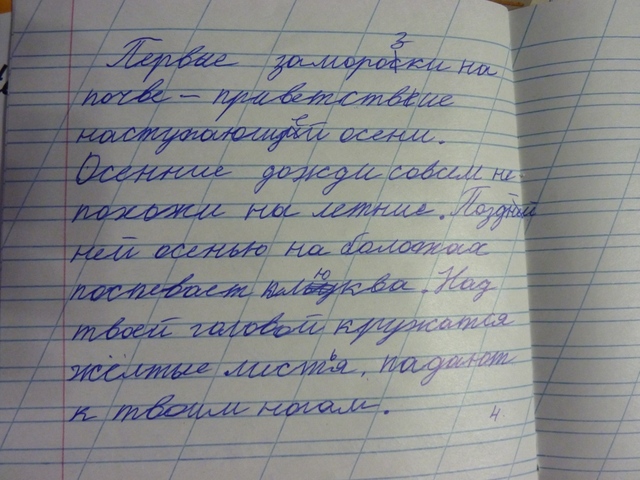 Первые заморозки на
почве – приветствие
наступающей осени.
Осенние дожди совсем не-
похожи на летние. Позд
ней осенью на болотах
поспевает клюква. Над
твоей головой кружатся
жёлтые листья, падают
к твоим ногам.
4